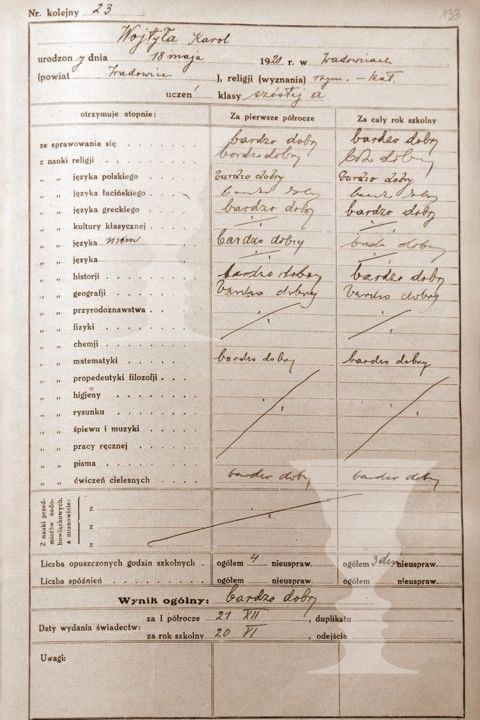 Nr. kolejny 23
133
Wojtyła Karol
urodzony dnia 18 maja 1920 r. w Wadowicach
(powiat Wadowice ), religji (wyznania) rzym. - kat.
uczeń klasy szóstej a
otrzymuje stopnie: Za pierwsze półrocze Za cały rok szkolny
ze sprawowania się bardzo dobry bardzo dobry
z nauki religji bardzo dobry bdz dobry
„ „ języka polskiego bardzo dobry bardzo dobry
„ „ języka łacińskiego bardzo dobry bardzo dobry
„ „ języka greckiego bardzo dobry bardzo dobry
„ „ kultury klasycznej
„ „ języka niem bardzo dobry bardo dobry
„ „ języka
„ „ historji bardzo dobry bardzo dobry
„ „ geografji bardzo dobry bardzo dobry
„ „ przyrodoznawstwa
„ „ fizyki
„ „ chemji
„ „ matematyki bardzo dobry bardzo dobry
„ „ propedeutyki filozofji
„ „ higjeny
„ „ rysunku
„ „ śpiewu i muzyki
„ „ pracy ręcznej
„ „ pisma
„ „ ćwiczeń cielesnych bardzo dobry bardzo dobry
Z nauki przed-
miotów nado-
bowiązkowych,
a mianowicie:
z
z
z
Liczba opuszczonych godzin szkolnych ogółem 4 nieuspraw. ogółem 3 nieuspraw.
Liczba spóźnień ogółem nieuspraw. ogółem nieuspraw.
Wynik ogólny: bardzo dobry
Daty wydania świadectw: za I półrocze 21 XII , duplikatu
za rok szkolny 20 VI , odejścia
Uwagi: